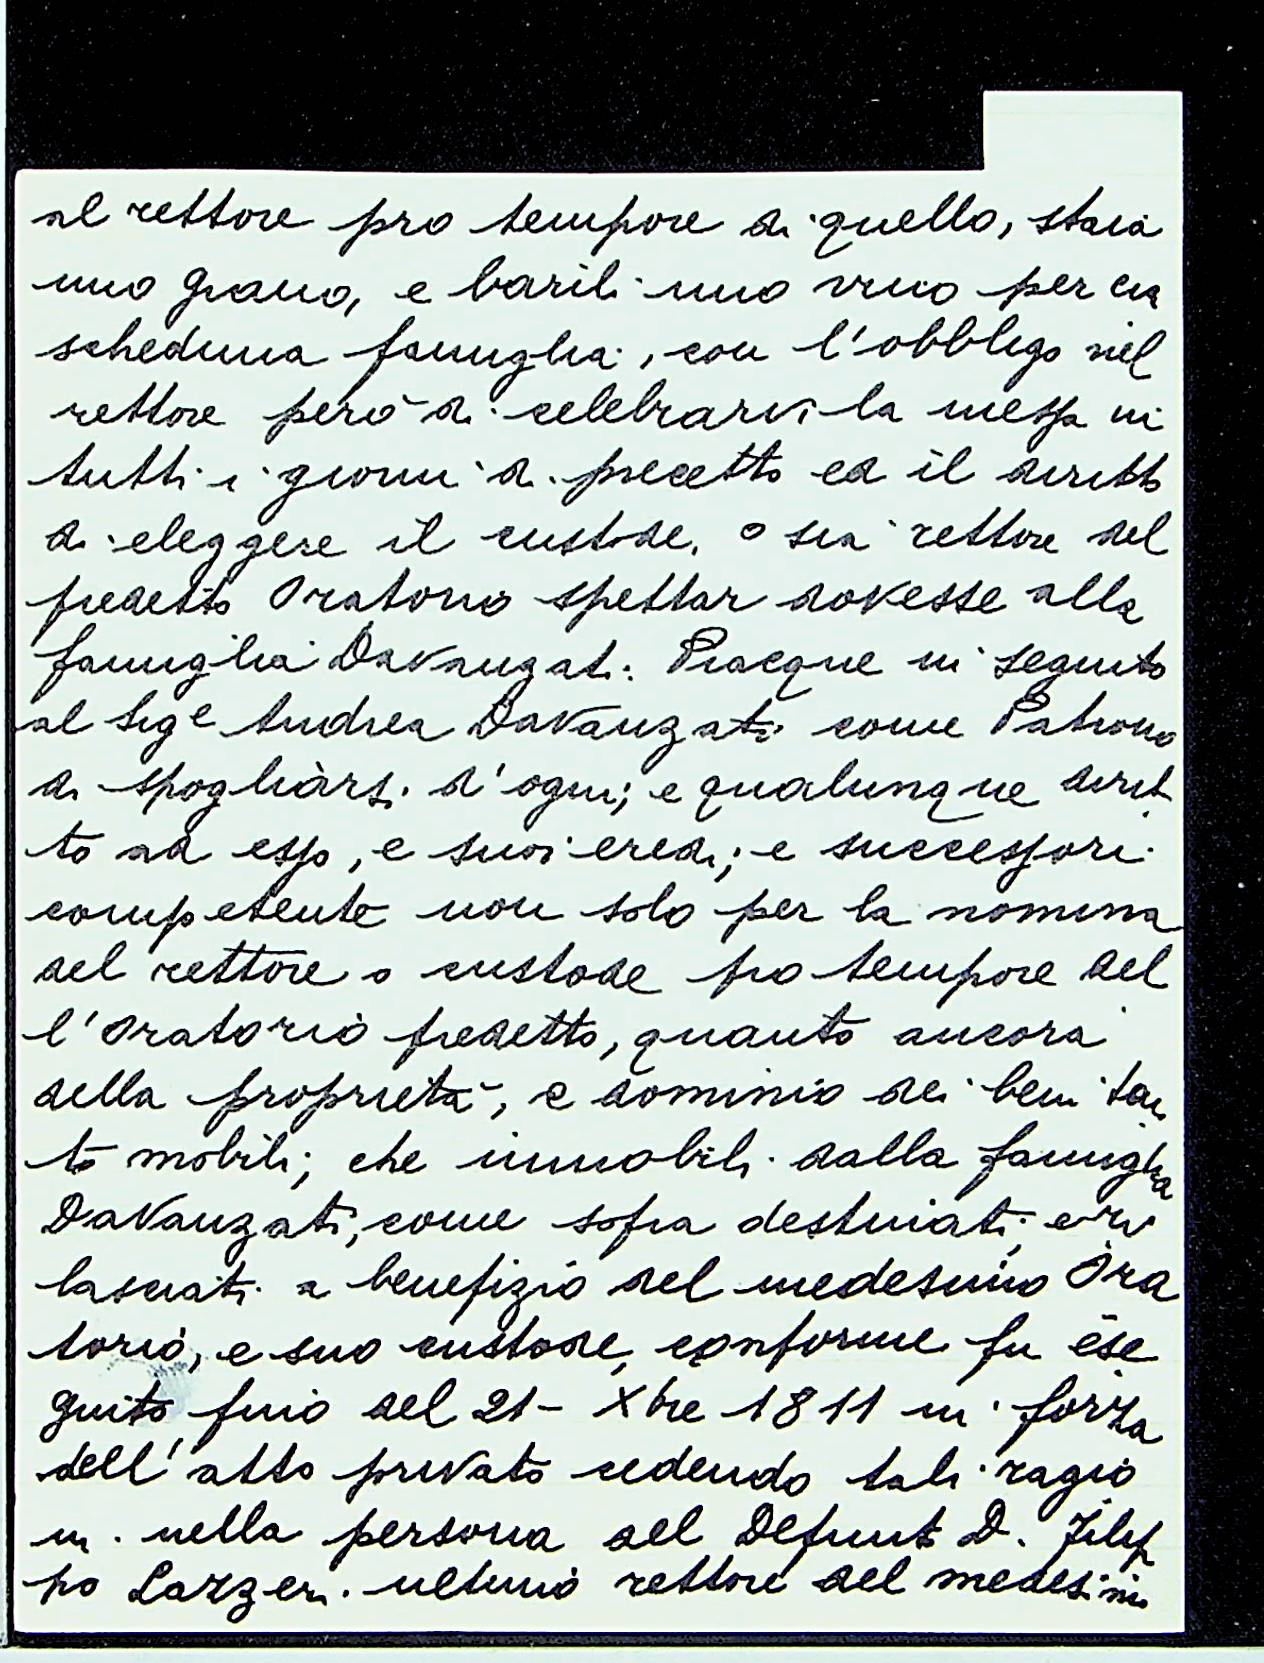 al rettore pro tempore di quello, staia
uno grano, e barili uno vino per cia
scheduna famiglia, con l'obbligo nel
rettore però di celebrarvi la messa in
tutti i giorni di precetto ed il diritto
di eleggere il custode, o sia rettore del
predetto Oratorio spettar dovesse alla
famiglia Davanzati. Piacque in seguito
al Sig.e Andrea Davanzati come Patrono
di spogliarsi d'ogni; e qualunque dirit
to ad esso, e suoi eredi; e successori
competente non solo per la nomina
del rettore o custode pro tempore del
l'Oratorio predetto, quanto ancora
della proprietà, e dominio dei beni tan
to mobili; che immobili dalla famiglia
Davanzati, come sopra destinati, e ri
lasciati a benefizio del medesimo Ora
torio, e suo custode, conforme fu ese
guito fino del 21- Xbre 1811 in forza
dell'atto privato cedendo tali ragio
ni nella persona del Defunto D. Filip
po Lazzeri ultimo rettore del medesimo